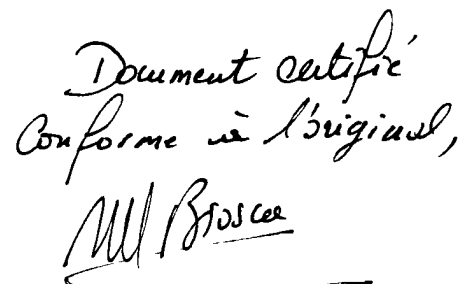 Document certifié
Conforme à l'original,